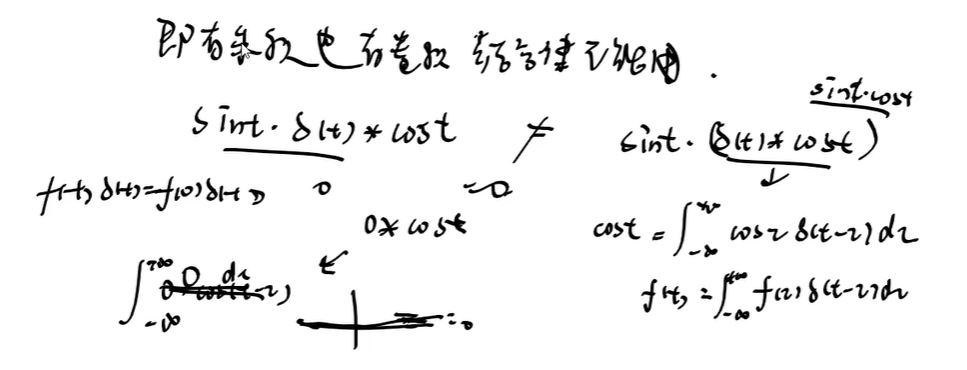 即有乘积也有卷积 结合律不能用.
sint·cost
sint·δ(t)*cost ≠ sint·(δ(t)*cost)
f(t)δ(t)=f(0)δ(t) 0 =0
0*cost cost=∫_{-∞}^{+∞} cosτ δ(t-τ)dτ
∫_{-∞}^{+∞} 0 dτ =0 f(t)=∫_{-∞}^{+∞} f(τ)δ(t-τ)dτ